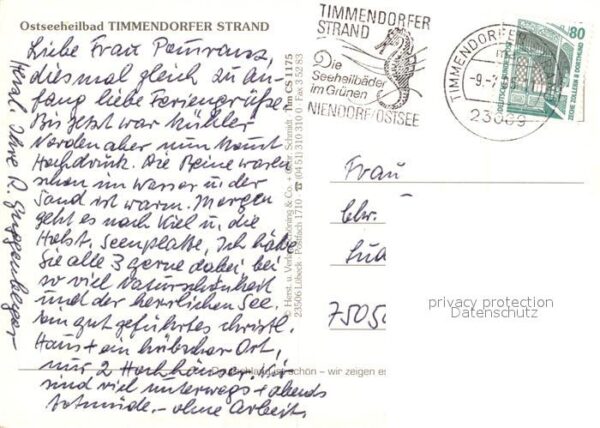 Ostseeheilbad TIMMENDORFER STRAND
Liebe Frau
diesmal gleich zu An-
fang liebe Feriengrüße.
Bis jetzt war kühler
Norden aber nun kommt
Hochdruck. Die Beine waren
schon im Wasser u. der
Sand ist warm. Morgen
geht es nach Kiel u. die
Holst. Seenplatte, Ich hätte
Sie alle 3 gerne dabei bei
so viel Naturschönheit
und der herrlichen See.
Ein gut geführtes christl.
Haus + ein hübscher Ort,
nur 2 Hochhäuser. Wir
sind viel unterwegs + abends
totmüde. - ohne Arbeit.
Herzl. Ihre R. Guggenberger
© Herst. u. Verlag Schöning & Co. + Gebr. Schmidt · Tim CS 1175
23506 Lübeck · Postfach 1710 · ☎ (04 51) 310 310 · Fax 3 52 83
schön – wir zeigen es
TIMMENDORFER
STRAND
Die
Seeheilbäder
im Grünen
NIENDORF/OSTSEE
TIMMENDORFER
23669
80
DEUTSCHE BUNDESPOST
ZECHE ZOLLERN II DORTMUND
Frau
privacy protection
Datenschutz